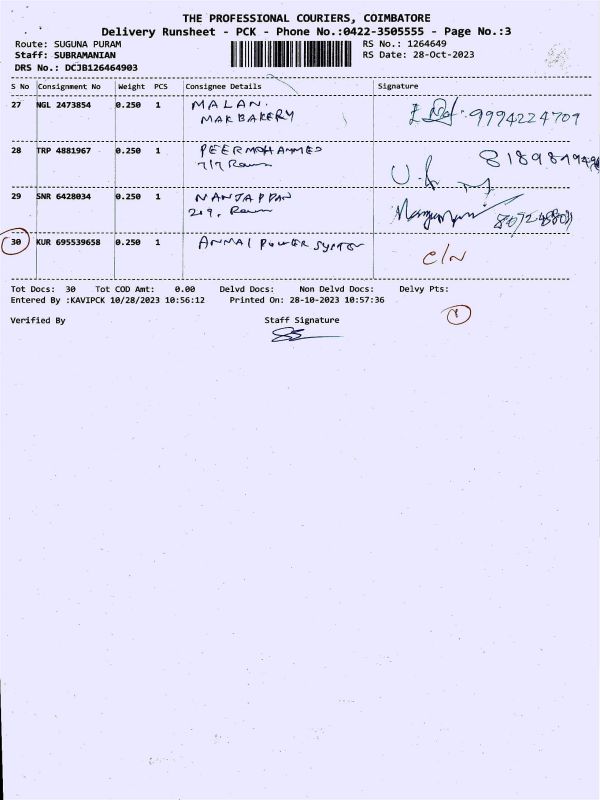 THE PROFESSIONAL COURIERS, COIMBATORE
Delivery Runsheet - PCK - Phone No.:0422-3505555 - Page No.:3
Route: SUGUNA PURAM RS No.: 1264649
Staff: SUBRAMANIAN RS Date: 28-Oct-2023
DRS No.: DCJB126464903
S No Consignment No Weight PCS Consignee Details Signature
27 NGL 2473854 0.250 1 MALAN.
MAK BAKERY 9994224709
28 TRP 4881967 0.250 1 PEERMOHAMMED
717
29 SNR 6428034 0.250 1 NANJAPPAN
209,
30 KUR 695539658 0.250 1 ANMAI POWER SYSTEM
C/N
Tot Docs: 30 Tot COD Amt: 0.00 Delvd Docs: Non Delvd Docs: Delvy Pts:
Entered By :KAVIPCK 10/28/2023 10:56:12 Printed On: 28-10-2023 10:57:36
Verified By Staff Signature